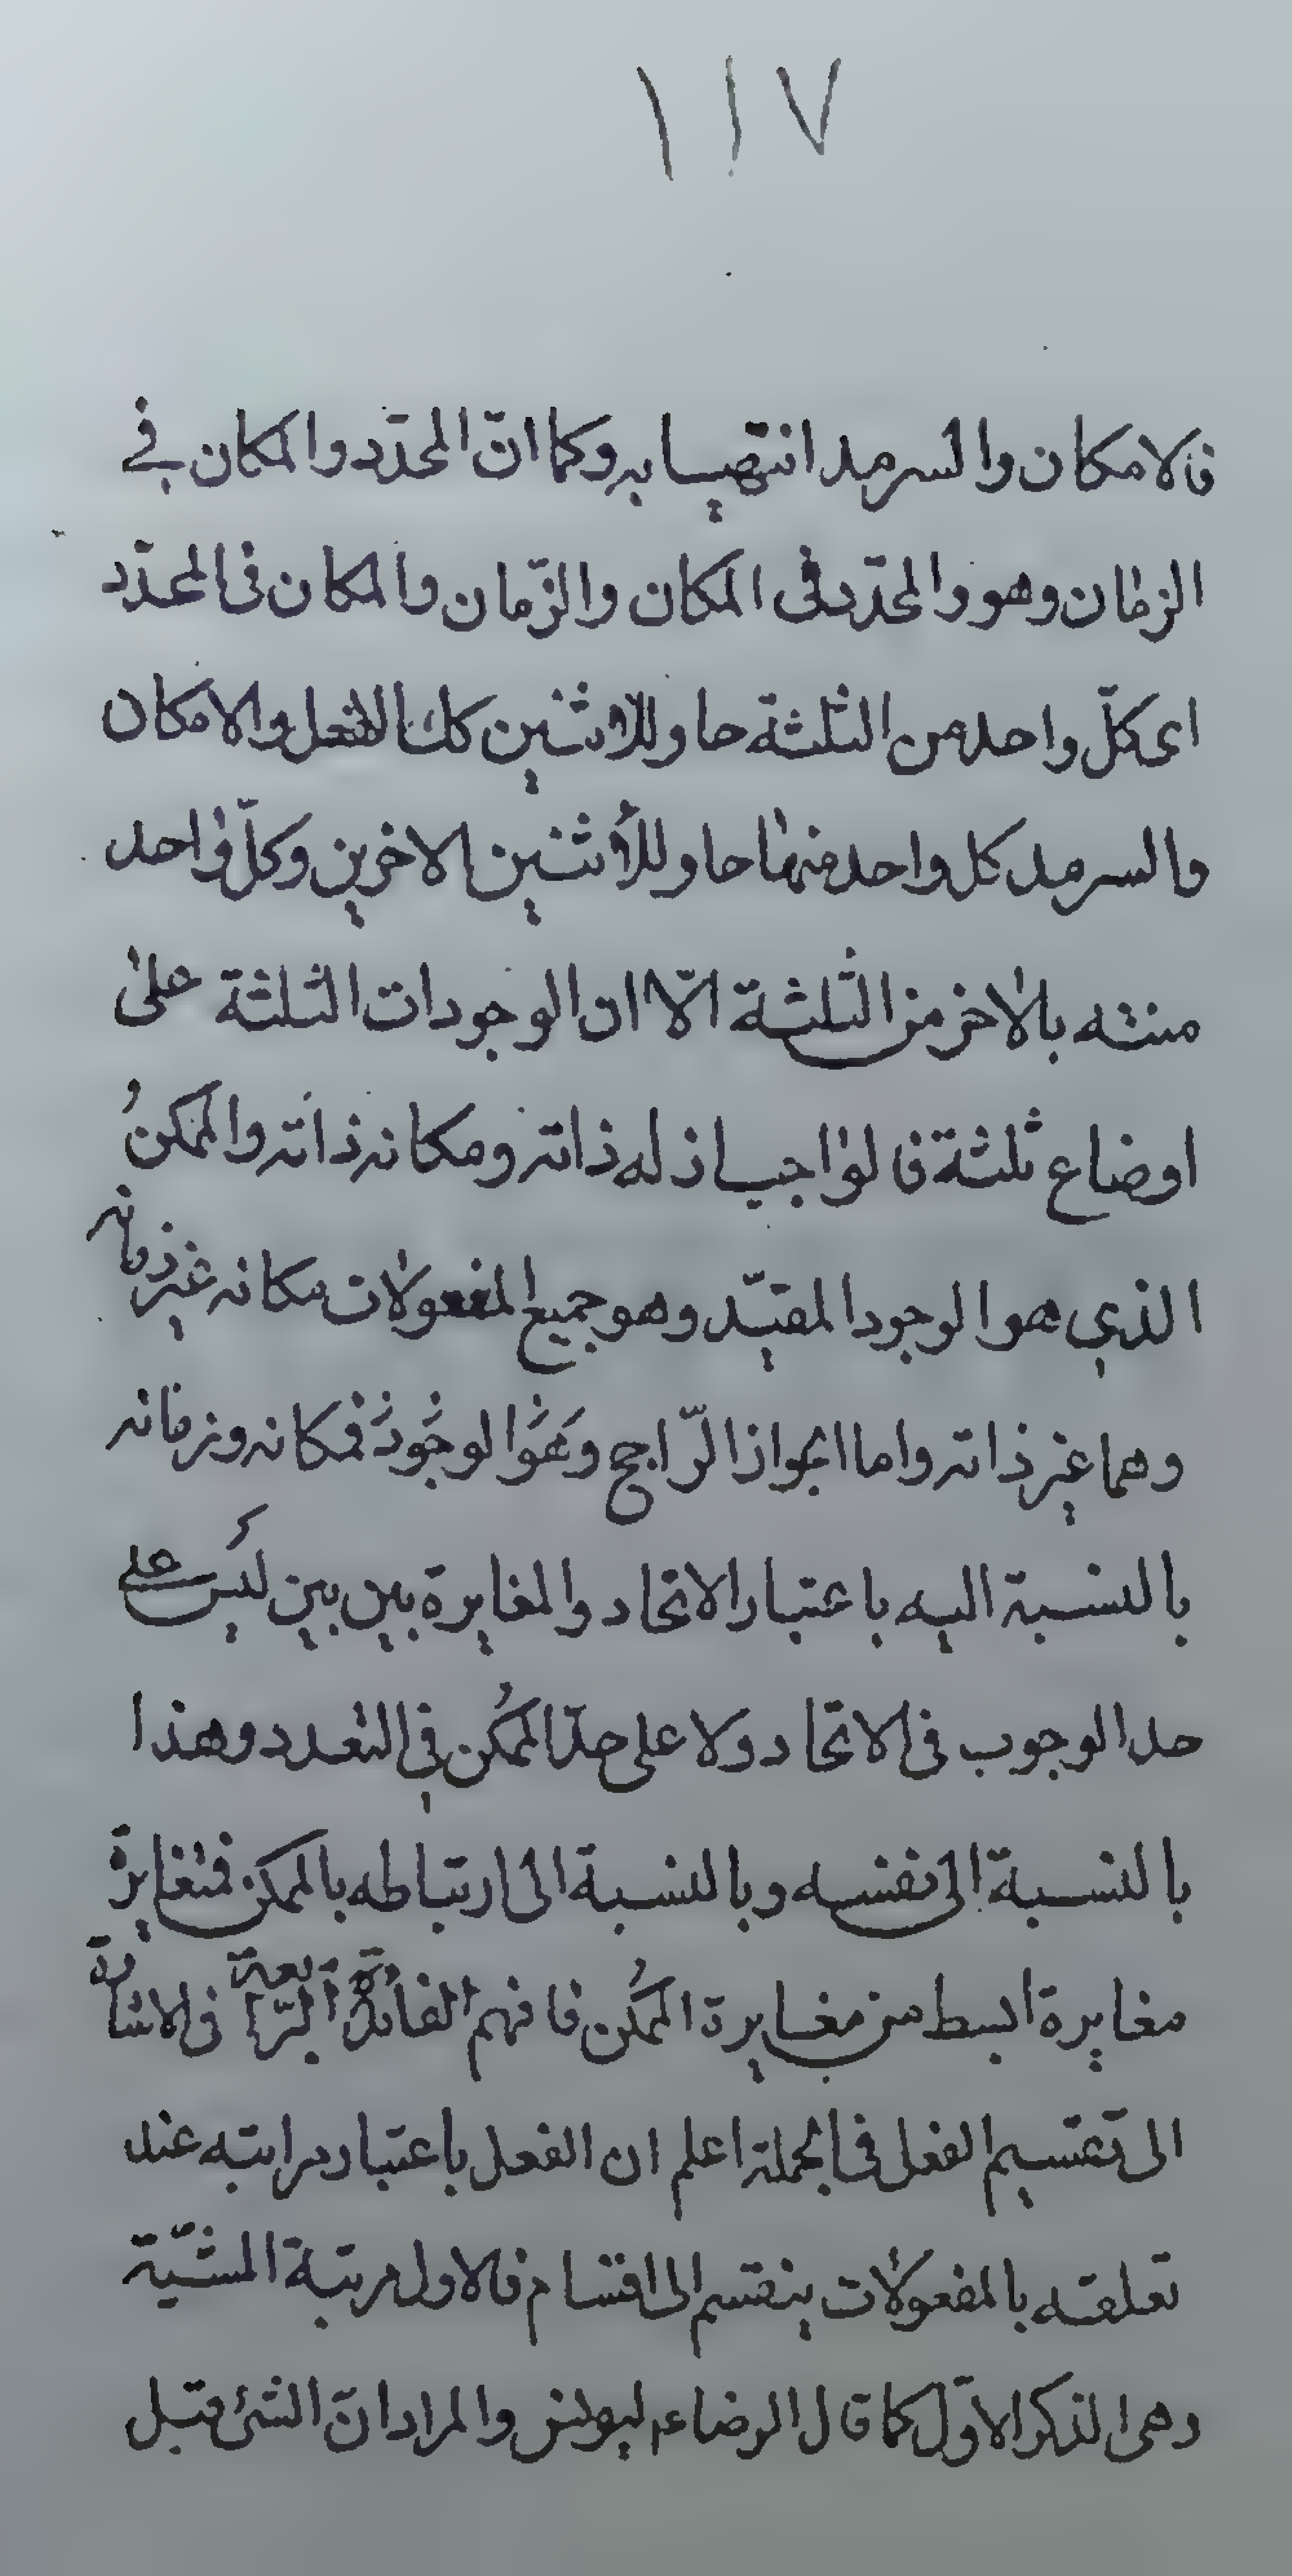 ١١٧
فالامكان والسرمد انتهيا به وكما انّ المحدّد والمكان في
الزمان وهو والمحدّد فى المكان والزّمان والمكان فى المحدّد
اى كلّ واحد من الثلثة حاو للاثنين كك الفعل والامكان
والسرمد كل واحد منها حاو للأثنين الاخرين وكلّ واحد
منته بالاخر من الثلثة الّا ان الوجودات الثلثة على
اوضاع ثلثة فالواجب اذ له ذاته ومكانه ذاته والممكنُ
الذي هو الوجود المقيّد وهو جميع المفعولات مكانه غير زمانه
وهما غير ذاته واما الجواز الرّاجح وهو الوجود فمكانه وزمانه
بالنسبة اليه باعتبار الاتحاد والمغايرة بين بين ليس على
حد الوجوب فى الاتحاد ولا على حدّ الممكن في التعدد وهذا
بالنسبة الى نفسه وبالنسبة الى ارتباطه بالممكن فمتغايرة
مغايرة ابسط من مغايرة الممكن فافهم الفائدة الرّابعة فى الاشارة
الى تقسيم الفعل فى الجملة اعلم ان الفعل باعتبار مراتبه عند
تعلقه بالمفعولات ينقسم الى اقسام فالاول مرتبة المشيّة
وهى الذكر الاوّل كما قال الرضاء ليونس والمراد انّ الشئ قبل